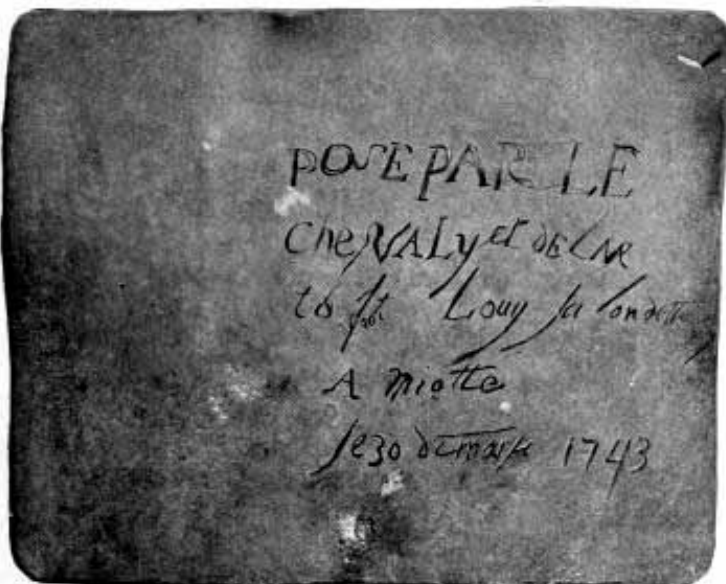 POSE PAR LE
CheVALyet DE LAVR
to St Louy la londette
A Miotte
le 30 de mars 1743